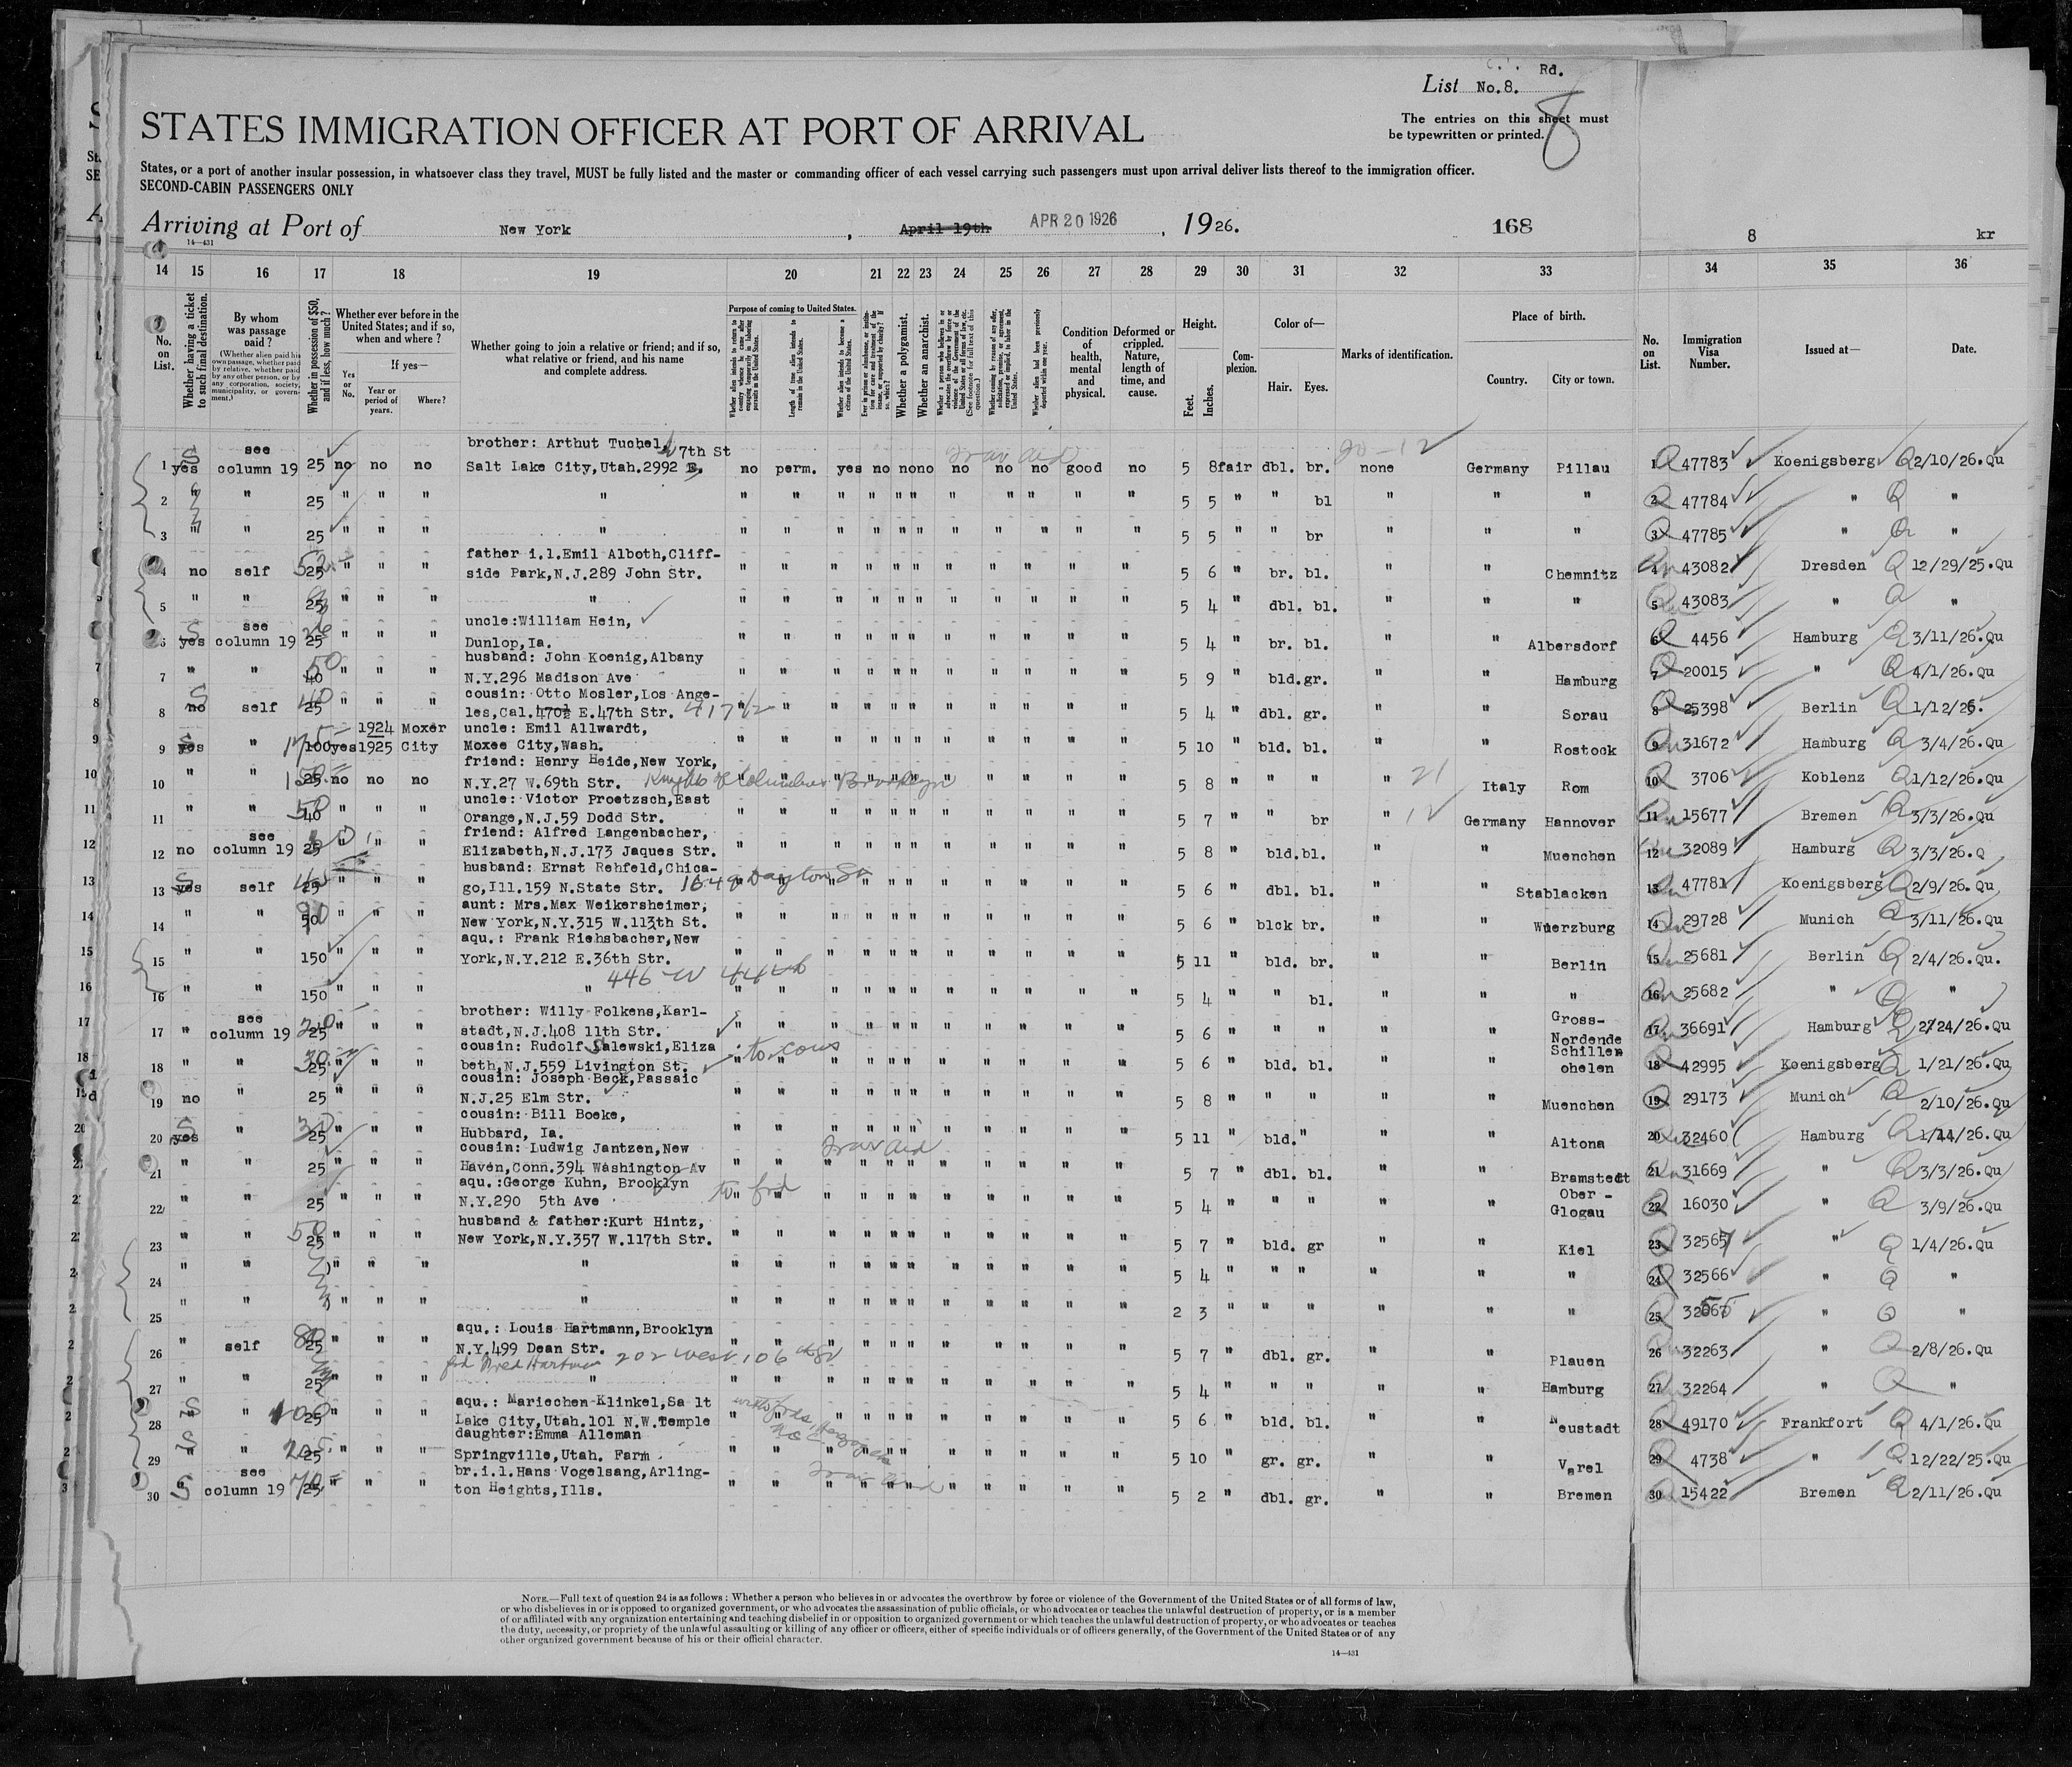 Rd.
List No.8.
8
The entries on this sheet must
be typewritten or printed.
STATES IMMIGRATION OFFICER AT PORT OF ARRIVAL
States, or a port of another insular possession, in whatsoever class they travel, MUST be fully listed and the master or commanding officer of each vessel carrying such passengers must upon arrival deliver lists thereof to the immigration officer.
SECOND-CABIN PASSENGERS ONLY
Arriving at Port of New York , April 19th APR 20 1926 , 1926. 168 8 kr
14—431
14 15 16 17 18 19 20 21 22 23 24 25 26 27 28 29 30 31 32 33 34 35 36
No. on List.
Whether having a ticket to such final destination.
By whom was passage paid?
(Whether alien paid his own passage, whether paid by relative, whether paid by any other person, or by any corporation, society, municipality, or government.)
Whether in possession of $50, and if less, how much?
Whether ever before in the United States; and if so, when and where?
If yes—
Yes or No.
Year or period of years.
Where?
Whether going to join a relative or friend; and if so, what relative or friend, and his name and complete address.
Purpose of coming to United States.
Length of time alien intends to remain in the United States.
Whether alien intends to become a citizen of the United States.
Whether a polygamist.
Whether an anarchist.
Condition of health, mental and physical.
Deformed or crippled. Nature, length of time, and cause.
Height.
Feet. Inches.
Complexion.
Color of—
Hair. Eyes.
Marks of identification.
Place of birth.
Country. City or town.
No. on List.
Immigration Visa Number.
Issued at—
Date.
brother: Arthut Tuchel, 7th St
1 yes see column 19 25 no no no Salt Lake City,Utah.2992 E. no perm. yes no no no no no no good no 5 8 fair dbl. br. none Germany Pillau 1 47783 Koenigsberg 2/10/26.Qu
2 " " 25 " " " " 5 5 " " bl " " " 2 47784 " "
3 " " 25 " " " " 5 5 " " br " " " 3 47785 " "
father i.l.Emil Alboth,Cliff-
4 no self 25 " " " side Park,N.J.289 John Str. 5 6 " br. bl. " " Chemnitz 4 43082 Dresden 12/29/25.Qu
5 " " 25 " " " " 5 4 " dbl. bl. " " " 5 43083 " "
uncle:William Hein,
6 yes see column 19 25 " " " Dunlop,Ia. 5 4 " br. bl. " " Albersdorf 6 4456 Hamburg 3/11/26.Qu
husband: John Koenig,Albany
7 " " 40 50 " " " N.Y.296 Madison Ave 5 9 " bld.gr. " " Hamburg 7 20015 " 4/1/26.Qu
cousin: Otto Mosler,Los Ange-
8 no self 25 40 " " " les,Cal.470½ E.47th Str. 417½ 5 4 " dbl. gr. " " Sorau 8 25398 Berlin 1/12/26.
uncle: Emil Allwardt,
9 yes " 100 yes 1924 1925 Moxer City Moxee City,Wash. 5 10 " bld. bl. " " Rostock 9 31672 Hamburg 3/4/26.Qu
friend: Henry Heide,New York,
10 " " 25 no no no N.Y.27 W.69th Str. Knights of Columbus Brooklyn 5 8 " " " " Italy Rom 10 3706 Koblenz 1/12/26.Qu
uncle: Victor Proetzsch,East
11 " " 40 50 " " " Orange,N.J.59 Dodd Str. 5 7 " " br " Germany Hannover 11 15677 Bremen 3/3/26.Qu
friend: Alfred Langenbacher,
12 no see column 19 25 " " " Elizabeth,N.J.173 Jaques Str. 5 8 " bld.bl. " " Muenchen 12 32089 Hamburg 3/3/26.Q
husband: Ernst Rehfeld,Chica-
13 yes self 25 " " " go,Ill.159 N.State Str. 1649 Dayton St 5 6 " dbl. bl. " " Stablacken 13 47781 Koenigsberg 2/9/26.Qu
aunt: Mrs.Max Weikersheimer,
14 " " 50 " " " New York,N.Y.315 W.113th St. 5 6 " blck br. " " Wuerzburg 14 29728 Munich 3/11/26.Qu
aqu.: Frank Riehsbacher,New
15 " " 150 " " " York,N.Y.212 E.36th Str. 5 11 " bld. br. " " Berlin 15 25681 Berlin 2/4/26.Qu.
446 W 44th
16 " " 150 " " " " 5 4 " " bl. " " " 16 25682 " "
brother: Willy Folkens,Karl-
17 " see column 19 25 " " " stadt,N.J.408 11th Str. 5 6 " " " " " Gross-Nordende 17 36691 Hamburg 2/24/26.Qu
cousin: Rudolf Salewski,Eliza
18 " " 25 30 " " " beth,N.J.559 Livington St. to cous 5 6 " bld. bl. " " Schillen ohelen 18 42995 Koenigsberg 1/21/26.Qu
cousin: Joseph Beck,Passaic
19 no " 25 " " " N.J.25 Elm Str. 5 8 " " " " " Muenchen 19 29173 Munich 2/10/26.Qu
cousin: Bill Boeke,
20 yes " 25 30 " " " Hubbard, Ia. 5 11 " bld. " " " Altona 20 32460 Hamburg 1/14/26.Qu
cousin: Ludwig Jantzen,New
21 " " 25 " " " Haven,Conn.394 Washington Av Trav aid 5 7 " dbl. bl. " " Bramstedt 21 31669 " 3/3/26.Qu
aqu.:George Kuhn, Brooklyn
22 " " 25 " " " N.Y.290 5th Ave to frd 5 4 " " " " " Ober-Glogau 22 16030 " 3/9/26.Qu
husband & father:Kurt Hintz,
23 " " 25 50 " " " New York,N.Y.357 W.117th Str. 5 7 " bld. gr " " Kiel 23 32567 " 1/4/26.Qu
24 " " " " " " 5 4 " " " " " " 24 32566 " "
25 " " " " " " 2 3 " " " " " " 25 " "
aqu.: Louis Hartmann,Brooklyn
26 " self 25 80 " " " N.Y.499 Dean Str. 5 7 " dbl. gr. " " Plauen 26 32263 " 2/8/26.Qu
202 West 106 St
27 " " 25 " " " " 5 4 " " " " " Hamburg 27 32264 " "
aqu.: Mariechen Klinkel,Salt
28 " " 25 100 " " " Lake City,Utah.101 N.W.Temple 5 6 " bld. bl. " " Neustadt 28 49170 Frankfort 4/1/26.Qu
daughter:Emma Alleman
29 " " 25 " " " Springville,Utah. Farm 5 10 " gr. gr. " " Varel 29 4738 " 12/22/25.Qu
br.i.l.Hans Vogelsang,Arling-
30 " see column 19 25 70 " " " ton Heights,Ills. Trav aid 5 2 " dbl. gr. " " Bremen 30 15422 Bremen 2/11/26.Qu
NOTE.—Full text of question 24 is as follows: Whether a person who believes in or advocates the overthrow by force or violence of the Government of the United States or of all forms of law,
or who disbelieves in or is opposed to organized government, or who advocates the assassination of public officials, or who advocates or teaches the unlawful destruction of property, or is a member
of or affiliated with any organization entertaining and teaching disbelief in or opposition to organized government or which teaches the unlawful destruction of property, or who advocates or teaches
the duty, necessity, or propriety of the unlawful assaulting or killing of any officer or officers, either of specific individuals or of officers generally, of the Government of the United States or of any
other organized government because of his or their official character.
14—431